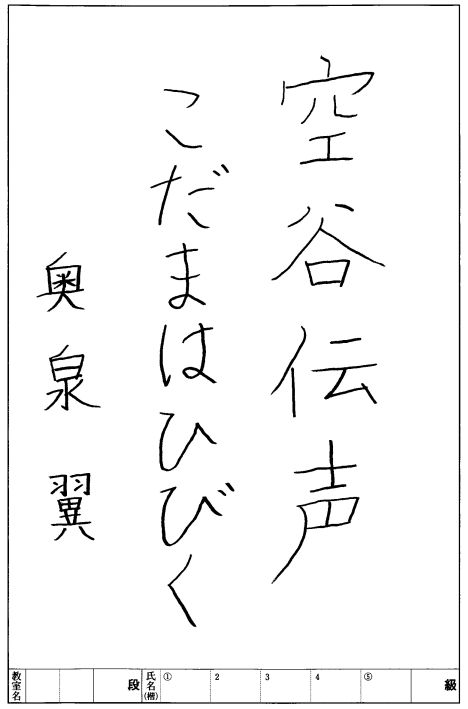 空谷伝声
こだまはひびく
奥泉翼
教室名
段
氏名(楷)
①
2
3
4
⑤
級